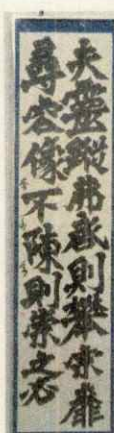 夫靈蹤弗啟則攀宗靡
尋容像不陳則崇之必